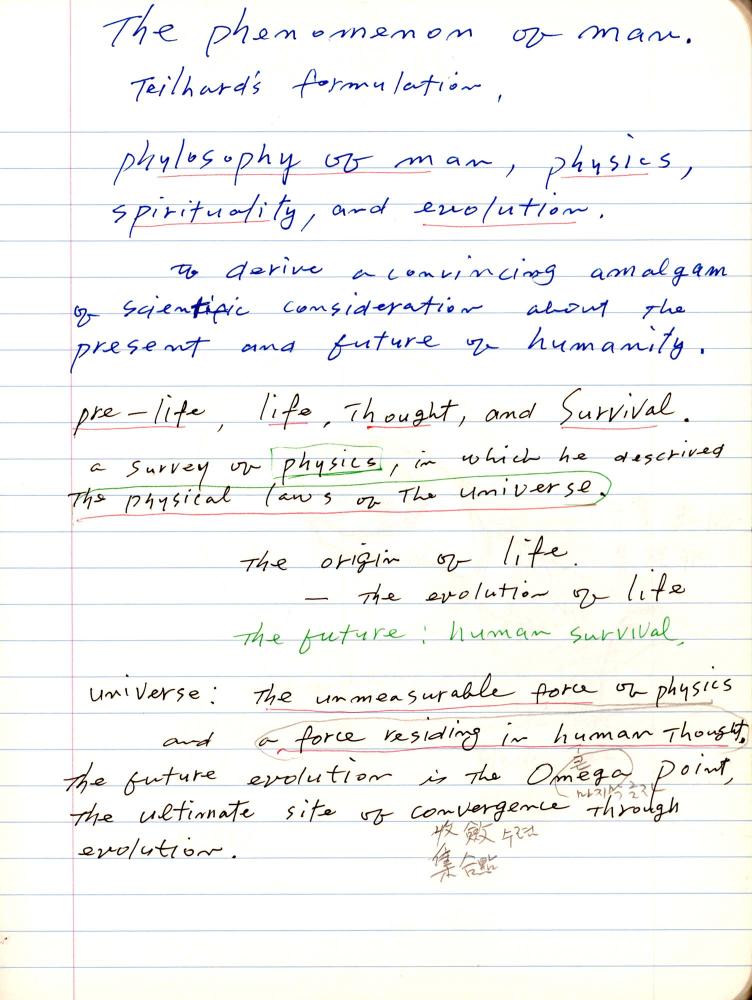 The phenomenon of man.
Teilhard's formulation,
phylosophy of man, physics,
spirituality, and evolution.
to derive a convincing amalgam
of scientific consideration about the
present and future of humanity.
pre-life, life, Thought, and Survival.
a survey of physics, in which he descrived
the physical laws of the universe.
The origin of life.
— The evolution of life
The future: human survival,
universe: The unmeasurable force of physics
and a force residing in human Thought.
The future evolution is the Omega point,
마지막
The ultimate site of convergence through
收斂 수렴
evolution.
集合點